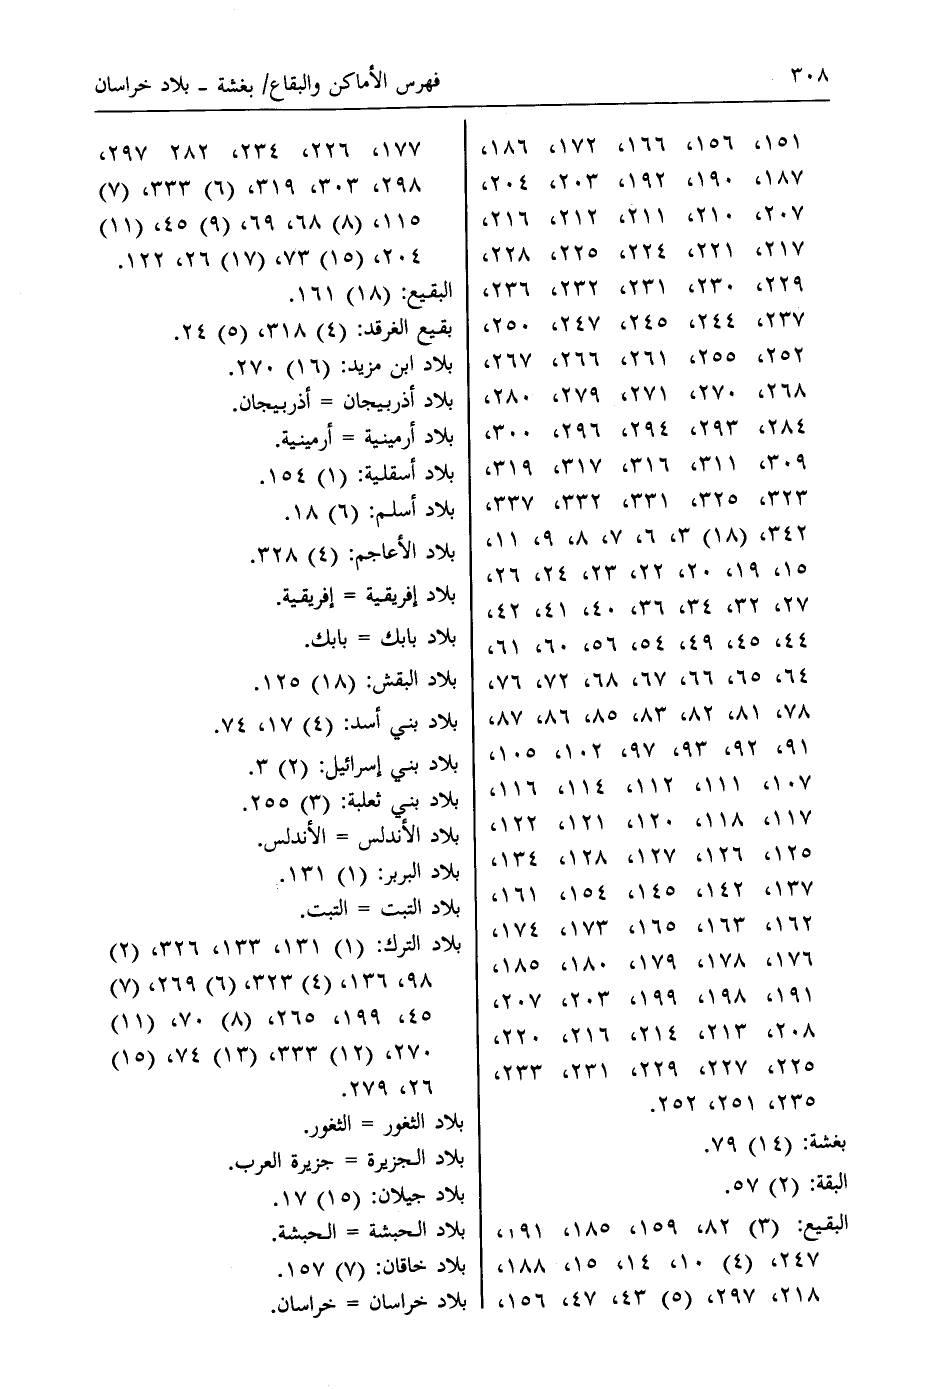 ٣٠٨
فهرس الأماكن والبقاع/ بغشة ـ بلاد خراسان
١٥١، ١٥٦، ١٦٦، ١٧٢، ١٨٦،
١٨٧، ١٩٠، ١٩٢، ٢٠٣، ٢٠٤،
٢٠٧، ٢١٠، ٢١١، ٢١٢، ٢١٦،
٢١٧، ٢٢١، ٢٢٤، ٢٢٥، ٢٢٨،
٢٢٩، ٢٣٠، ٢٣١، ٢٣٢، ٢٣٦،
٢٣٧، ٢٤٤، ٢٤٥، ٢٤٧، ٢٥٠،
٢٥٢، ٢٥٥، ٢٦١، ٢٦٦، ٢٦٧،
٢٦٨، ٢٧٠، ٢٧١، ٢٧٩، ٢٨٠،
٢٨٤، ٢٩٣، ٢٩٤، ٢٩٦، ٣٠٠،
٣٠٩، ٣١١، ٣١٦، ٣١٧، ٣١٩،
٣٢٣، ٣٢٥، ٣٣١، ٣٣٢، ٣٣٧،
٣٤٢، (١٨) ٣، ٦، ٧، ٨، ٩، ١١،
١٥، ١٩، ٢٠، ٢٢، ٢٣، ٢٤، ٢٦،
٢٧، ٣٢، ٣٤، ٣٦، ٤٠، ٤١، ٤٢،
٤٤، ٤٥، ٤٩، ٥٤، ٥٦، ٦٠، ٦١،
٦٤، ٦٥، ٦٦، ٦٧، ٦٨، ٧٢، ٧٦،
٧٨، ٨١، ٨٢، ٨٣، ٨٥، ٨٦، ٨٧،
٩١، ٩٢، ٩٣، ٩٧، ١٠٢، ١٠٥،
١٠٧، ١١١، ١١٢، ١١٤، ١١٦،
١١٧، ١١٨، ١٢٠، ١٢١، ١٢٢،
١٢٥، ١٢٦، ١٢٧، ١٢٨، ١٣٤،
١٣٧، ١٤٢، ١٤٥، ١٥٤، ١٦١،
١٦٢، ١٦٣، ١٦٥، ١٧٣، ١٧٤،
١٧٦، ١٧٨، ١٧٩، ١٨٠، ١٨٥،
١٩١، ١٩٨، ١٩٩، ٢٠٣، ٢٠٧،
٢٠٨، ٢١٣، ٢١٤، ٢١٦، ٢٢٠،
٢٢٥، ٢٢٧، ٢٢٩، ٢٣١، ٢٣٣،
٢٣٥، ٢٥١، ٢٥٢.
بغشة: (١٤) ٧٩.
البقة: (٢) ٥٧.
البقيع: (٣) ٨٢، ١٥٩، ١٨٥، ١٩١،
٢٤٧، (٤) ١٠، ١٤، ١٥، ١٨٨،
٢١٨، ٢٩٧، (٥) ٤٣، ٤٧، ١٥٦،
١٧٧، ٢٢٦، ٢٣٤، ٢٨٢ ٢٩٧،
٢٩٨، ٣٠٣، ٣١٩، (٦) ٣٣٣، (٧)
١١٥، (٨) ٦٨، ٦٩، (٩) ٤٥، (١١)
٢٠٤، (١٥) ٧٣، (١٧) ٢٦، ١٢٢.
البقيع: (١٨) ١٦١.
بقيع الغرقد: (٤) ٣١٨، (٥) ٢٤.
بلاد ابن مزيد: (١٦) ٢٧٠.
بلاد أذربيجان = أذربيجان.
بلاد أرمينية = أرمينية.
بلاد أسقلية: (١) ١٥٤.
بلاد أسلم: (٦) ١٨.
بلاد الأعاجم: (٤) ٣٢٨.
بلاد إفريقية = إفريقية.
بلاد بابك = بابك.
بلاد البقش: (١٨) ١٢٥.
بلاد بني أسد: (٤) ١٧، ٧٤.
بلاد بني إسرائيل: (٢) ٣.
بلاد بني ثعلبة: (٣) ٢٥٥.
بلاد الأندلس = الأندلس.
بلاد البربر: (١) ١٣١.
بلاد التبت = التبت.
بلاد الترك: (١) ١٣١، ١٣٣، ٣٢٦، (٢)
٩٨، ١٣٦، (٤) ٣٢٣، (٦) ٢٦٩، (٧)
٤٥، ١٩٩، ٢٦٥، (٨) ٧٠، (١١)
٢٧٠، (١٢) ٣٣٣، (١٣) ٧٤، (١٥)
٢٦، ٢٧٩.
بلاد الثغور = الثغور.
بلاد الجزيرة = جزيرة العرب.
بلاد جيلان: (١٥) ١٧.
بلاد الحبشة = الحبشة.
بلاد خاقان: (٧) ١٥٧.
بلاد خراسان = خراسان.